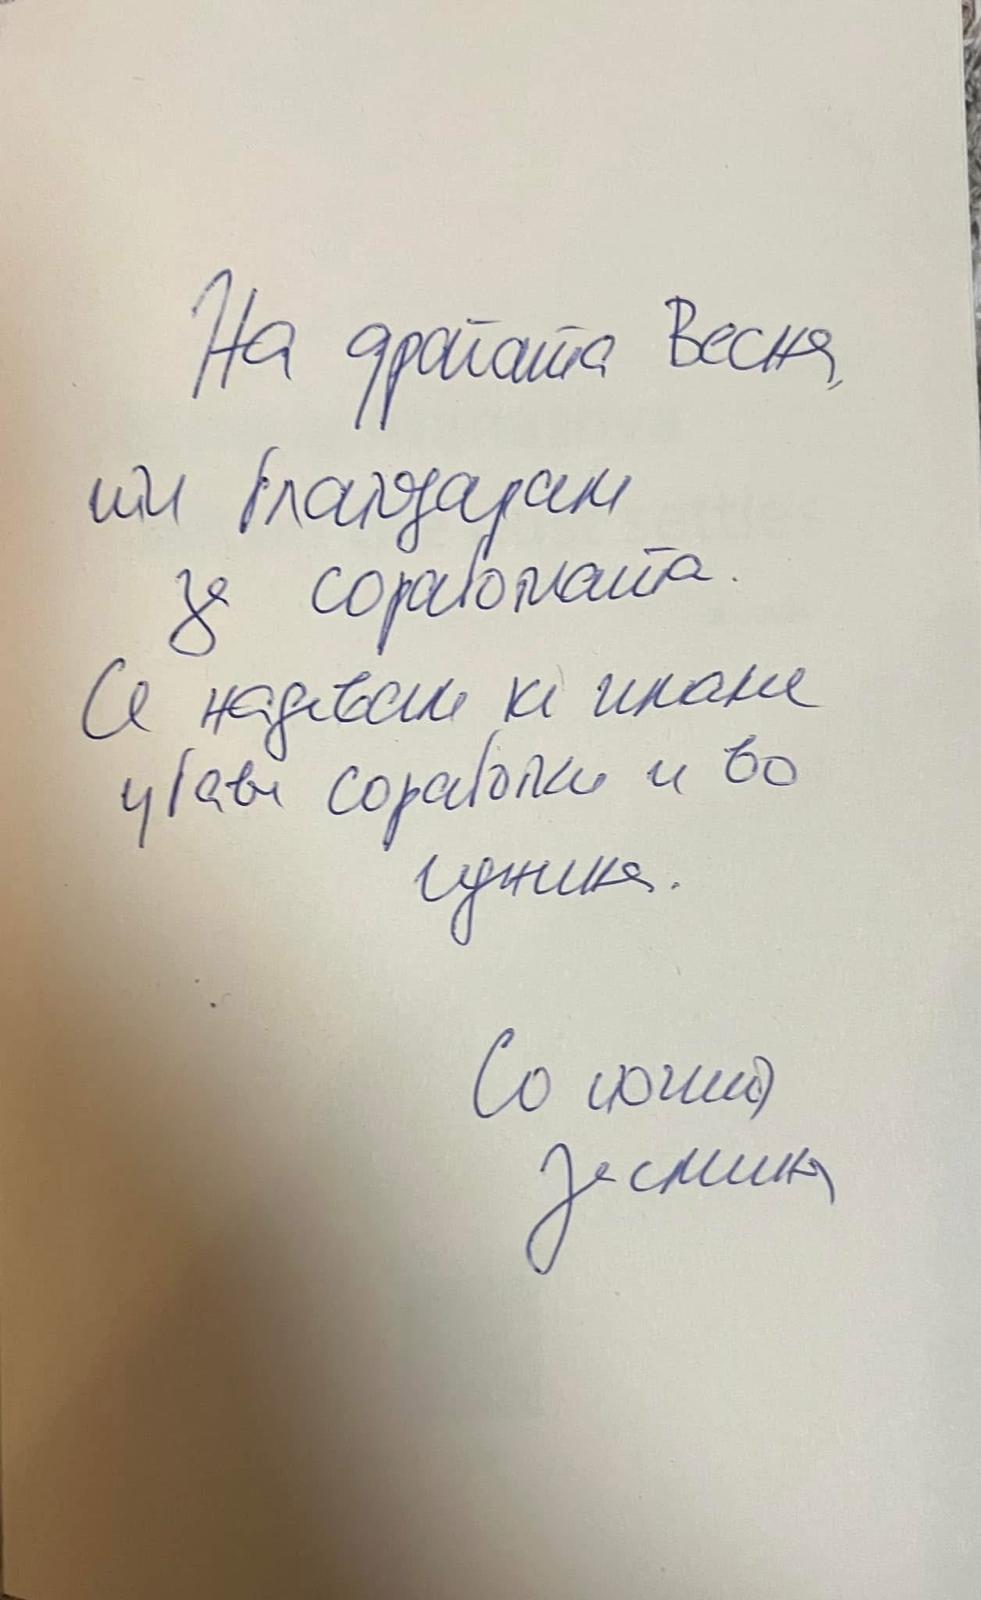 На драгата Весна,
ти благодарам
за соработката.
Се надевам ќе имаме
убави соработки и во
иднина.
Со почит
Јасмина